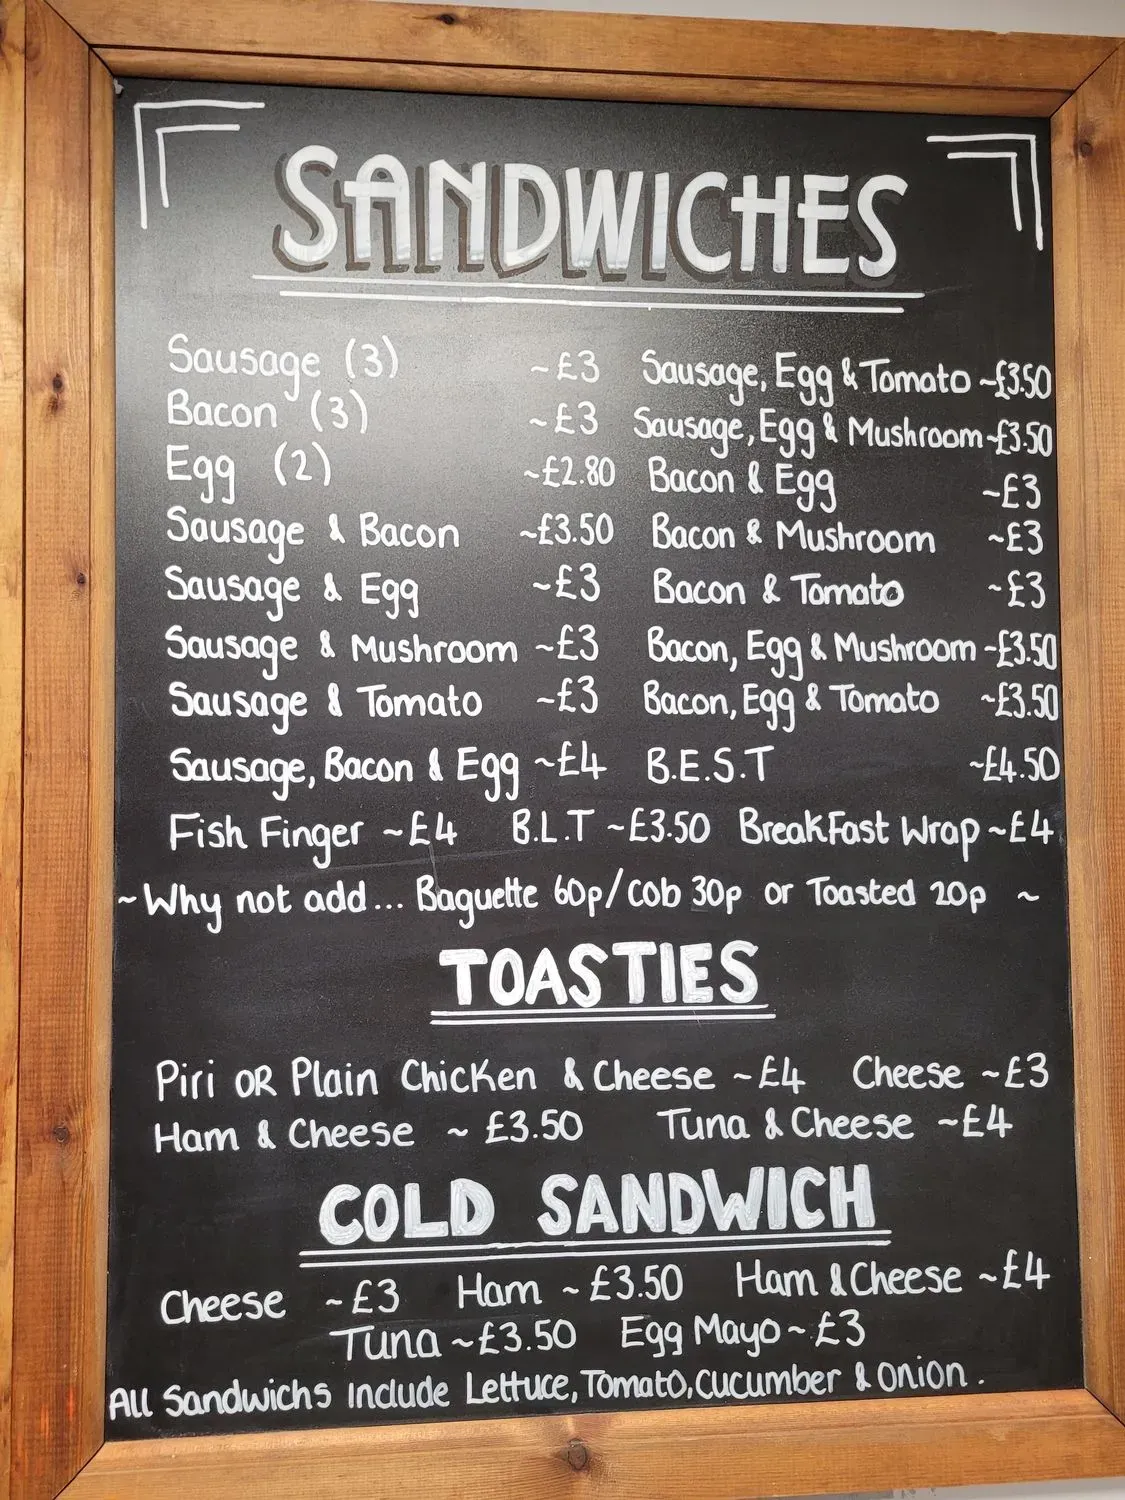 SANDWICHES
Sausage (3) ~£3 Sausage, Egg & Tomato ~£3.50
Bacon (3) ~£3 Sausage, Egg & Mushroom ~£3.50
Egg (2) ~£2.80 Bacon & Egg ~£3
Sausage & Bacon ~£3.50 Bacon & Mushroom ~£3
Sausage & Egg ~£3 Bacon & Tomato ~£3
Sausage & Mushroom ~£3 Bacon, Egg & Mushroom ~£3.50
Sausage & Tomato ~£3 Bacon, Egg & Tomato ~£3.50
Sausage, Bacon & Egg ~£4 B.E.S.T ~£4.50
Fish Finger ~£4 B.L.T ~£3.50 BreakFast Wrap ~£4
~Why not add... Baguette 60p/cob 30p or Toasted 20p ~
TOASTIES
Piri OR Plain Chicken & Cheese ~£4 Cheese ~£3
Ham & Cheese ~ £3.50 Tuna & Cheese ~£4
COLD SANDWICH
Cheese ~£3 Ham ~£3.50 Ham & Cheese ~£4
Tuna ~£3.50 Egg Mayo ~ £3
All Sandwichs Include Lettuce, Tomato, Cucumber & Onion.